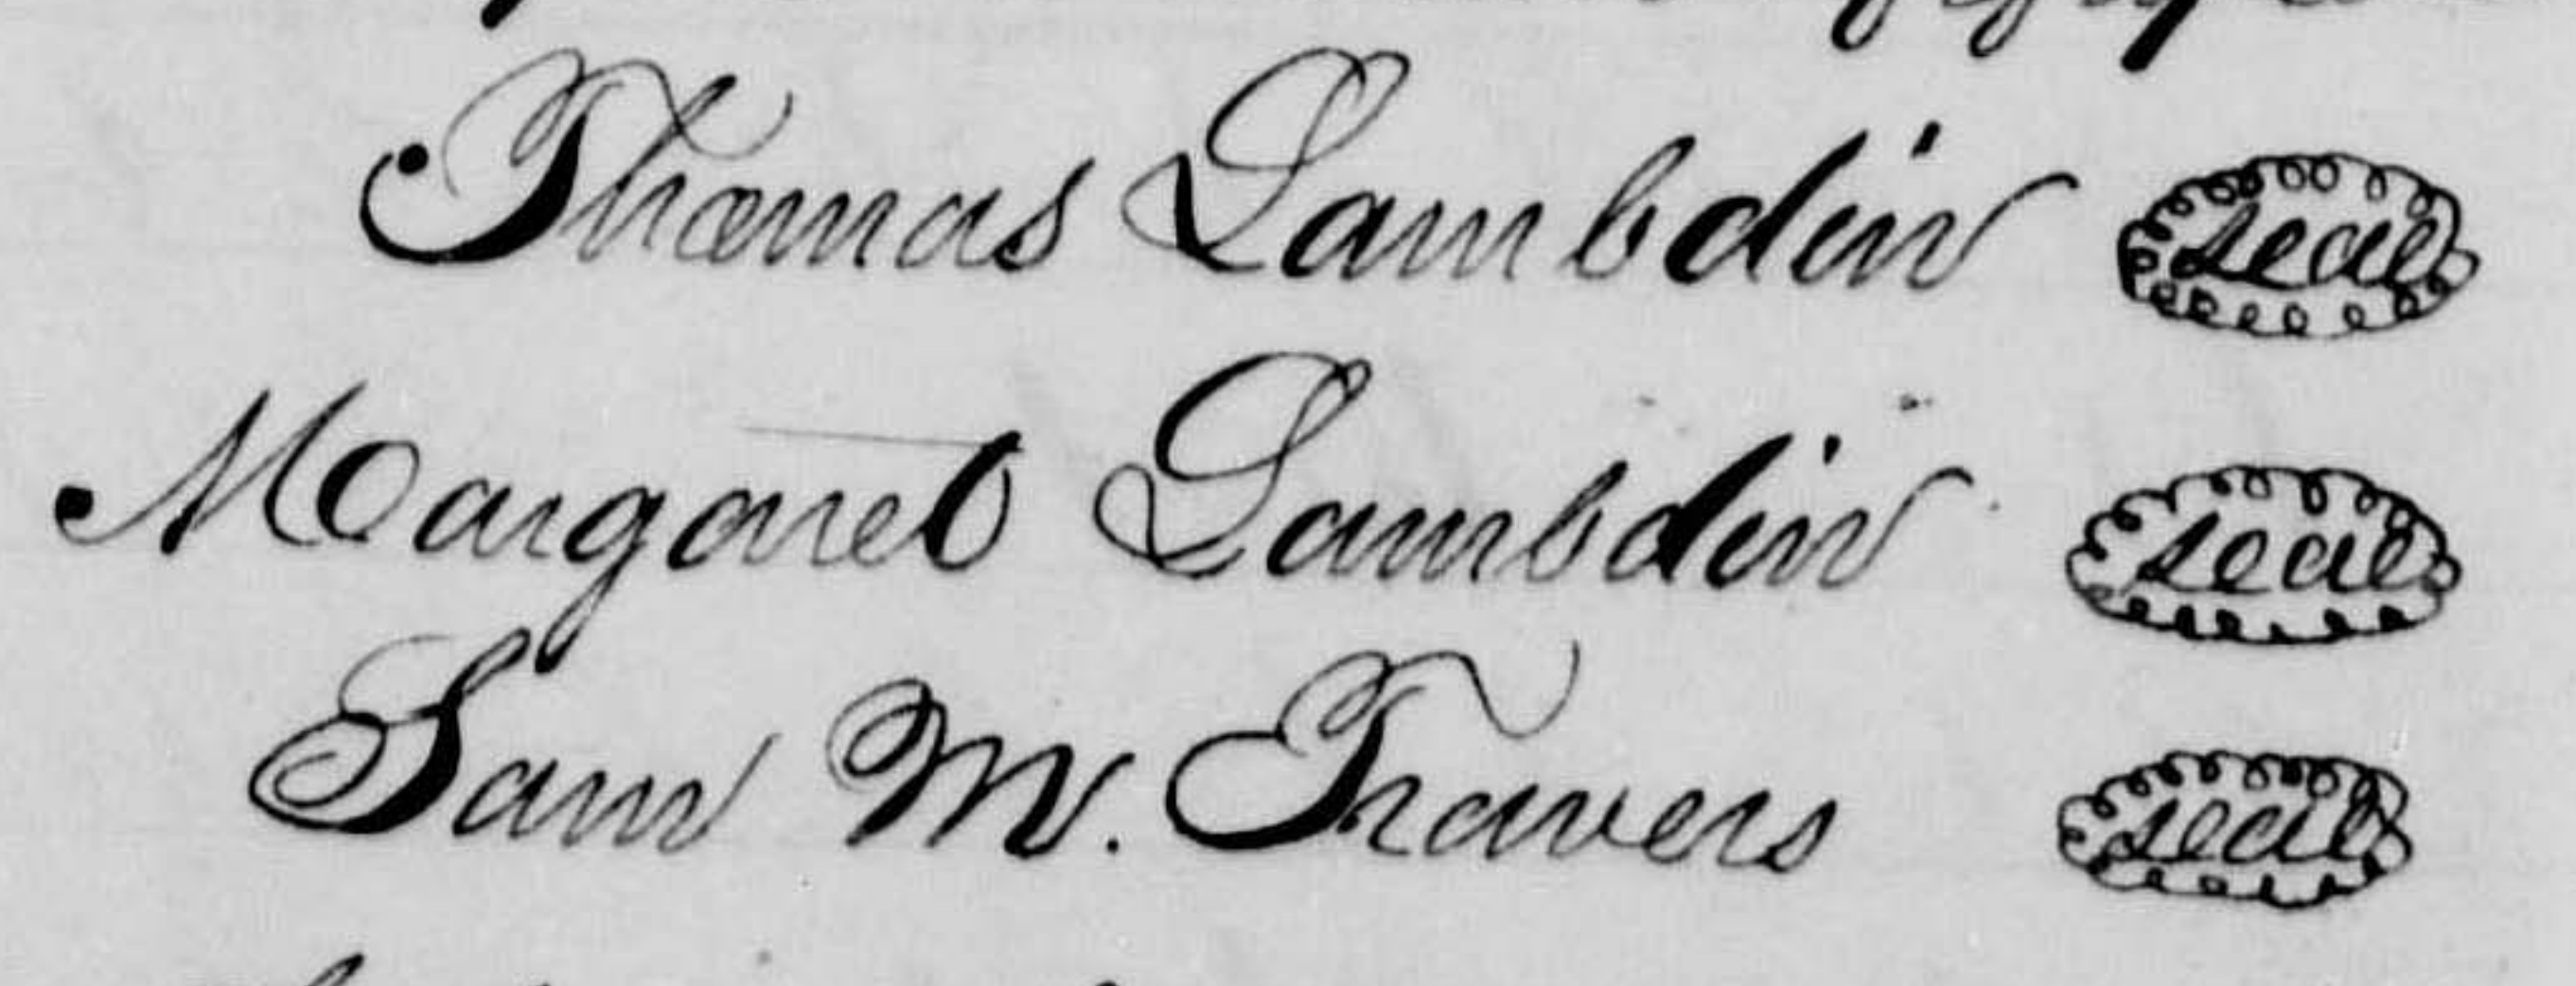 Thomas Lambdin seal
Margaret Lambdin seal
Sam M. Travers seal